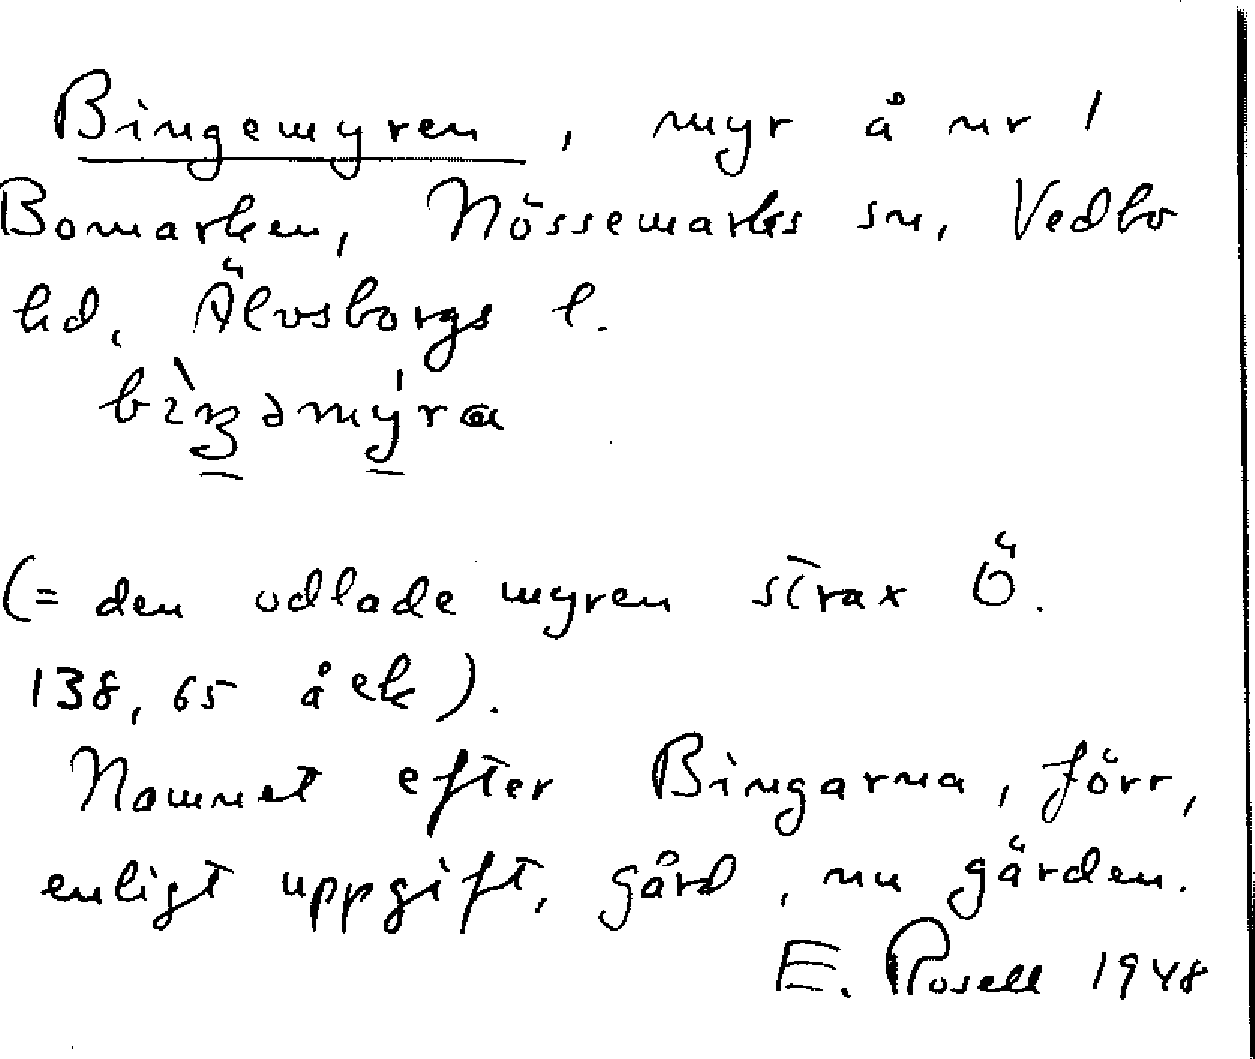 Bingemyren, myr å nr 1
Bomarken, Nössemarks sn, Vedbo
hd, Älvsborgs l.
(= den odlade myren strax Ö.
138,65 å ek).
Namnet efter Bingarna, förr,
enligt uppgift, gård, nu gärden.
E. Rosell 1948